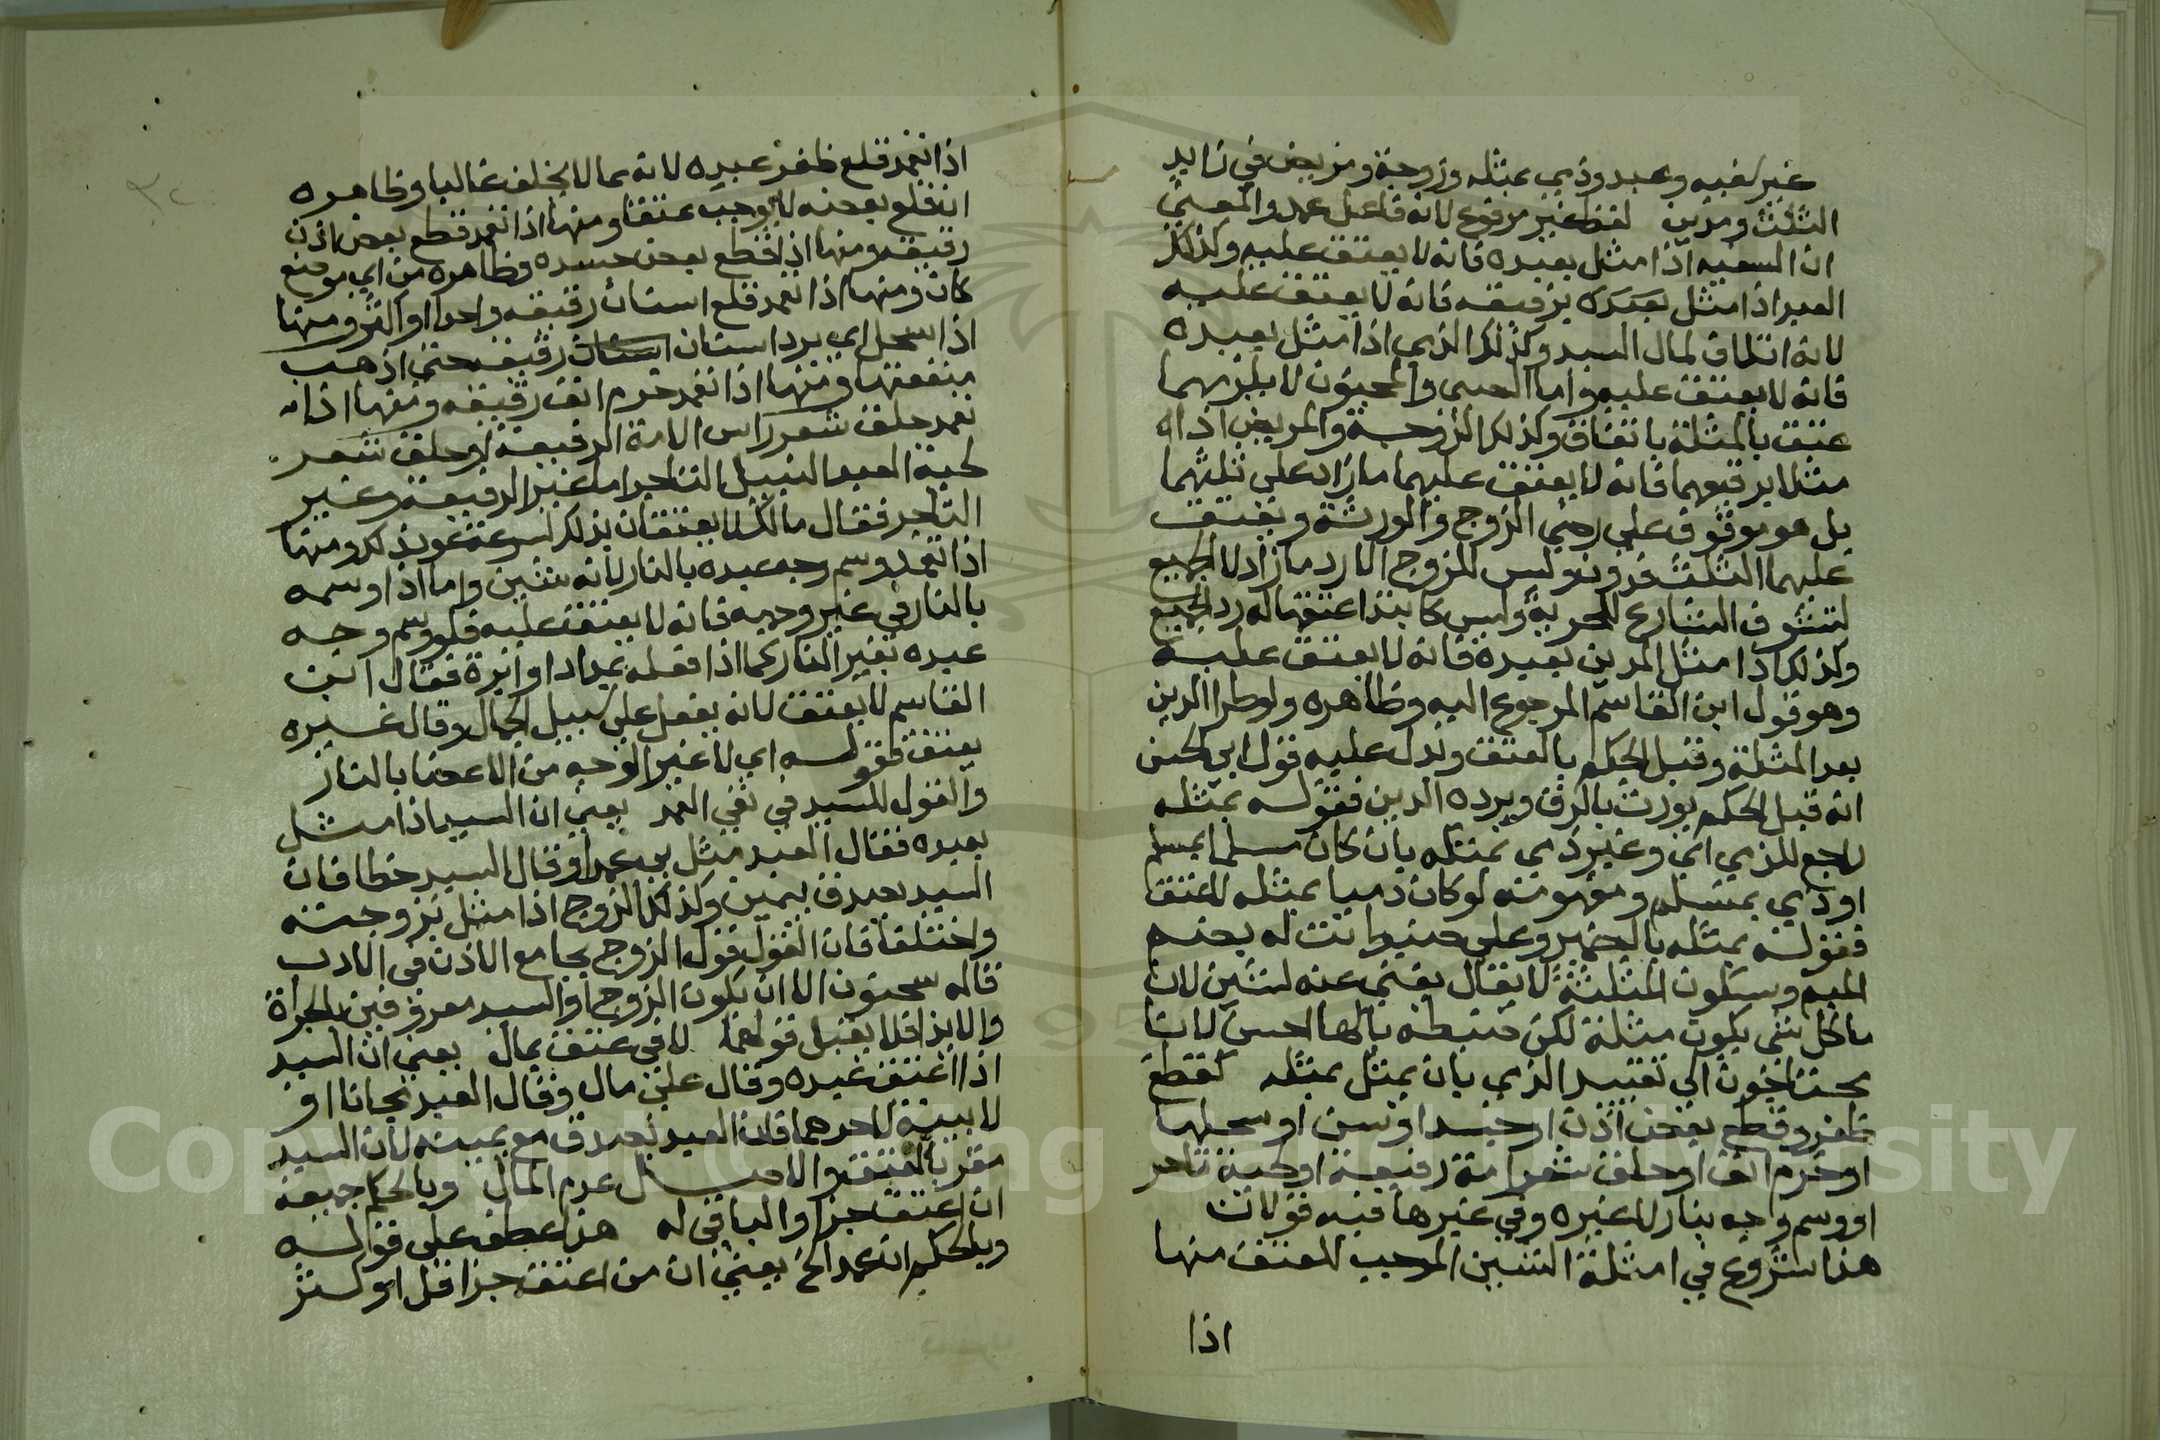 غير سفيه وعبد وذمي بمثله وزوجة ومريض في زايد
الثلث ومدين لفظ غير مرفوع لانه فاعل عمد والمعني
ان السفيه اذا مثل بعبده فانه لا يعتق عليه وكذلك
العبد اذا مثل برقيقه فانه لا يعتق عليه
لانه اتلاف لمال السيد وكذلك الذمي اذا مثل بعبده
فانه لا يعتق عليه واما الصبي والمجنون لا يلزمهما
عتق بالمثلة باتفاق وكذلك الزوجة والمريض اذا
مثلا برقيقهما فانه لا يعتق عليهما ما زاد علي ثلثهما
بل هو موقوف علي رضي الزوج والورثة ويعتق
عليهما الثلث فدون وليس للزوج الا رد ما زاد لا الجميع
لتشوف الشارع للحرية وليس كابتدا عتقها له رد الجميع
وكذلك اذا مثل المدين بعبده فانه لا يعتق عليه
وهو قول ابن القاسم المرجوع اليه وظاهره ولو طرا الدين
بعد المثلة وقبل الحكم بالعتق ويدل عليه قول ابي الحسن
انه قبل الحكم يورث بالرق ويرده الدين فقوله بمثله
راجع للذمي اي وغير ذمي بمثله بان كان مسلما بمسلم
او ذمي بمسلم ومفهومه لو كان ذميا بمثله لا عتق
فقوله بمثله بالضمير وعلي
الميم وسكون المثلثة لا يقال يغني عنه لشين لان
ما كل شي يكون مثلة لكن ضبطه بالها احسن لاننا
محتاجون الي تقييد الذمي بان يمثل بمثله كقطع
ظفر وقطع بعض اذن او جسد او سن او سحلها
او خرم انف او حلق شعر امة رفيعة او لحية تاجر
او وسم وجه بنار لا غيره وفي غيرها فيه قولان
هذا شروع في امثلة الشين الموجب للعتق منها
اذا
اذا تعمد قلع ظفر عبده لانه مما لا يخلف غالبا وظاهره
ان قلع بعضه لا يوجب عتقا ومنها اذا تعمد قطع بعض اذن
رقيقه ومنها اذا قطع بعض جسده وظاهره من اي موضع
كان ومنها اذا تعمد قلع اسنان رقيقه واحدا او اكثر ومنها
اذا سحل اي برد اسنان رقيقه حتي اذهب
منفعتها ومنها اذا تعمد خرم انف رقيقه ومنها اذا
تعمد حلق شعر راس الامة الرفيعة او حلق شعر
لحية العبد النبيل التاجر اما غير الرفيعة وغير
التاجر فقال مالك لا يعتقان بذلك لسرعة عود ذلك ومنها
اذا تعمد وسم وجه عبده بالنار لانه شين واما اذا وسمه
بالنار في غير وجهه فانه لا يعتق عليه فلو وسم وجه
عبده بغير النار كما اذا فعله بمداد او ابرة فقال ابن
القاسم لا يعتق لانه يفعل علي سبيل الجمال وقال غيره
يعتق فقوله اي لا غير الوجه من الاعضا بالنار
والقول للسيد في نفي العمد يعني ان السيد اذا مثل
بعبده فقال العبد مثل بي عمدا وقال السيد خطا فان
السيد يصدق بيمين وكذلك الزوج اذا مثل بزوجته
واختلفا فان القول قول الزوج بجامع الاذن في الادب
قاله سحنون الا ان يكون الزوج او السيد معروفين بالجراة
والايذا فلا يقبل قولهما لا في عتق بمال يعني ان السيد
اذا اعتق عبده وقال علي مال وقال العبد مجانا او
لا بينة لاحدهما فان العبد يصدق مع يمينه لان السيد
مقر بالعتق والاصل عدم المال وبالحكم جميعه
ان اعتق جزا والباقي له هذا عطف علي قوله
وبالحكم ان عمد الخ يعني ان من اعتق جزا قل او كثر